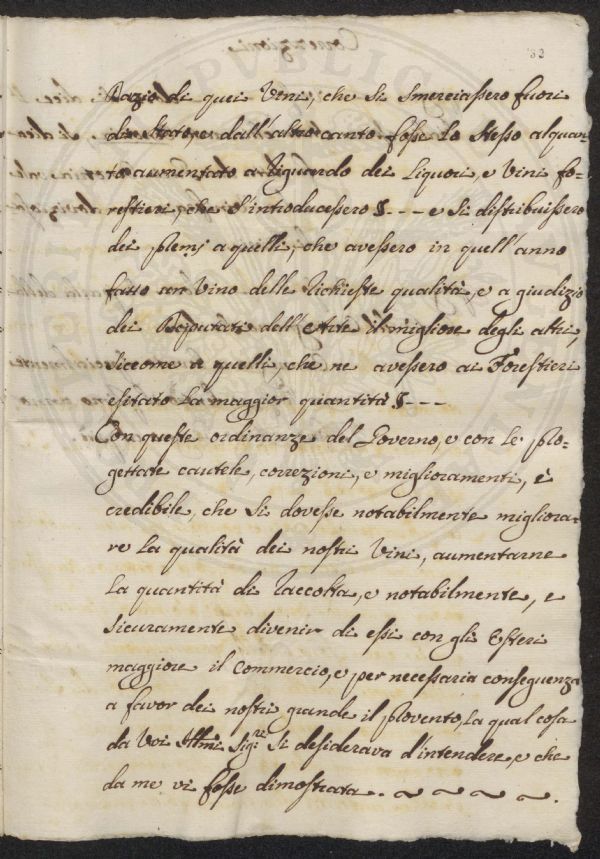 32
Dazio di quei Vini, che si smerciassero fuori
di Stato, e dall'altro canto fosse lo stesso alquan-
to aumentato a riguardo dei Liquori, e Vini fo-
restieri, che s'introducessero §.--- e si distribuissero
dei premj a quelli, che avessero in quell'anno
fatto un Vino delle richieste qualità, e a giudizio
dei Deputati dell'Arte il migliore degli altri,
siccome a quelli, che ne avessero ai Forestieri
esitato la maggior quantità §.---
Con queste ordinanze del Governo, e con le pro-
gettate cautele, correzioni, e miglioramenti, è
credibile, che si dovesse notabilmente migliora-
re la qualità dei nostri Vini, aumentarne
la quantità di raccolta, e notabilmente, e
sicuramente divenir di essi con gli Esteri
maggiore il Commercio, e per necessaria conseguenza
a favor dei nostri grande il provento, la qual cosa
da Voi Illmi Sigri si desiderava d'intendere, e che
da me vi fosse dimostrata. ~ ~ ~ ~ ~.